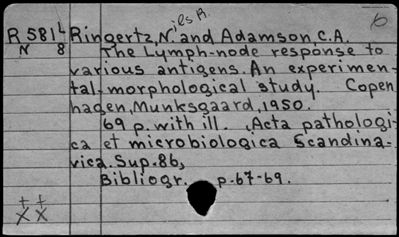 ils R. 6
R 581 L Ringertz, N. and Adamson, C.A.
N 8 The Lymph-node response to
various antigens. An experimen-
tal-morphological study. Copen
hagen, Munksgaard, 1950.
69 p. with ill. (Acta pathologi-
ca et microbiologica Scandina-
vica. Sup. 86,
Bibliogr. p. 67-69.
++
XX